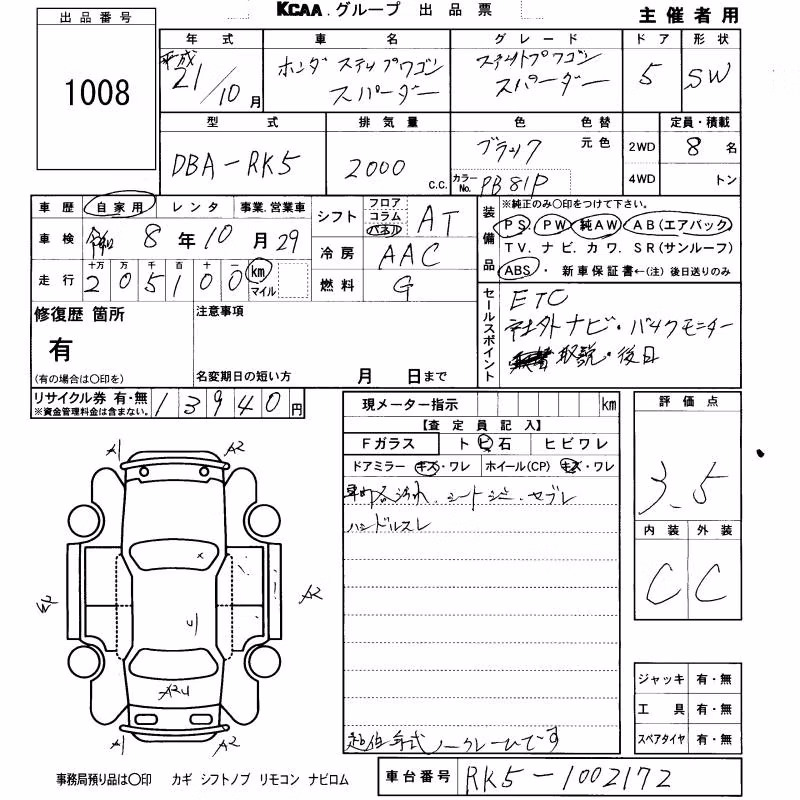 KCAA.グループ 出品票
主催者用
出品番号
1008
年式 車名 グレード ドア 形状
平成 21/10月 ホンダ ステップワゴン スパーダー ステップワゴン スパーダー 5 SW
型式 排気量 色 色替 定員・積載
DBA-RK5 2000 C.C. ブラック 元色 2WD 8 名
カラーNo. PB81P 4WD トン
車歴 自家用 レンタ 事業.営業車 シフト フロア コラム パネル AT
車検 令和 8年10月29 冷房 AAC
走行 十万 万 千 百 十 一 205100 km マイル 燃料 G
装備品 ※純正のみ〇印をつけて下さい。
PS. PW. 純AW. AB(エアバック)
TV. ナビ. カワ. SR(サンルーフ)
ABS. 新車保証書←(注) 後日送りのみ
セールスポイント
ETC
社外ナビ・バックモニター
取説・後日
修復歴 箇所 注意事項
有
(有の場合は〇印を) 名変期日の短い方 月 日まで
リサイクル券 有・無 13940円
※資金管理料金は含まない。
現メーター指示 km
【査定員記入】
Fガラス トビ石 ヒビワレ
ドアミラー キズ・ワレ ホイール(CP) キズ・ワレ
車内各汚れ、シートシミ・セブレ
ハンドルスレ
超低年式 ノークレームです
評価点
3.5
内装 外装
C C
ジャッキ 有・無
工具 有・無
スペアタイヤ 有・無
A1 A2
A2
A2U
A1 A2
事務局預り品は〇印 カギ シフトノブ リモコン ナビロム
車台番号 RK5-1002172